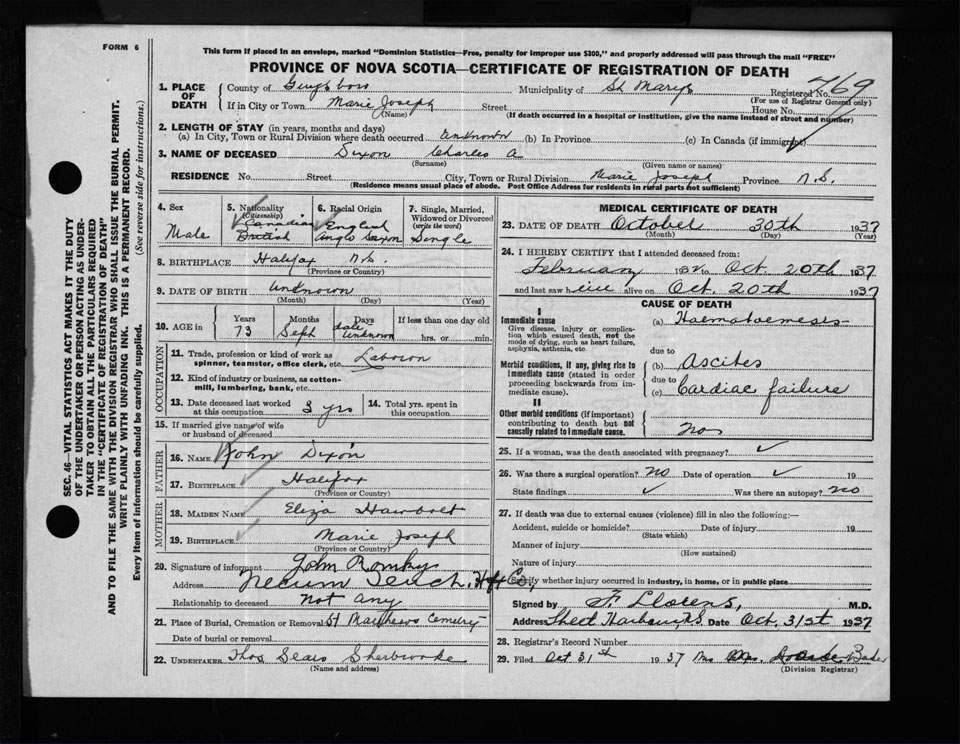 FORM 6
This form if placed in an envelope, marked "Dominion Statistics—Free, penalty for improper use $300," and properly addressed will pass through the mail "FREE"
PROVINCE OF NOVA SCOTIA—CERTIFICATE OF REGISTRATION OF DEATH
SEC. 46—VITAL STATISTICS ACT MAKES IT THE DUTY
OF THE UNDERTAKER OR PERSON ACTING AS UNDER-
TAKER TO OBTAIN ALL THE PARTICULARS REQUIRED
IN THE "CERTIFICATE OF REGISTRATION OF DEATH"
AND TO FILE THE SAME WITH THE DIVISION REGISTRAR WHO SHALL ISSUE THE BURIAL PERMIT.
WRITE PLAINLY WITH UNFADING INK. THIS IS A PERMANENT RECORD.
Every item of information should be carefully supplied. (See reverse side for instructions.)
1. PLACE OF DEATH County of Guysboro Municipality of St Marys Registered No. 769
(For use of Registrar General only)
If in City or Town Marie Joseph Street House No.
(Name) (If death occurred in a hospital or institution, give the name instead of street and number)
2. LENGTH OF STAY (in years, months and days)
(a) In City, Town or Rural Division where death occurred unknown (b) In Province (c) In Canada (if immigrant)
3. NAME OF DECEASED Dixon Charles A
(Surname) (Given name or names)
RESIDENCE No. Street City, Town or Rural Division Marie Joseph Province N.S.
(Residence means usual place of abode. Post Office Address for residents in rural parts not sufficient)
4. Sex Male
5. Nationality (Citizenship) Canadian British
6. Racial Origin English Anglo Saxon
7. Single, Married, Widowed or Divorced (write the word) Single
8. BIRTHPLACE Halifax N.S.
(Province or Country)
9. DATE OF BIRTH unknown
(Month) (Day) (Year)
10. AGE in Years 73 Months Sept Days date unknown If less than one day old hrs. or min.
OCCUPATION
11. Trade, profession or kind of work as spinner, teamster, office clerk, etc.
12. Kind of industry or business, as cotton-mill, lumbering, bank, etc.
13. Date deceased last worked at this occupation 3 yrs 14. Total yrs. spent in this occupation
15. If married give name of wife or husband of deceased
FATHER
16. NAME John Dixon
17. BIRTHPLACE Halifax
(Province or Country)
MOTHER
18. MAIDEN NAME Eliza Hawbolt
19. BIRTHPLACE Marie Joseph
(Province or Country)
20. Signature of informant John
Address Necum Teuch. Hfx Co,
Relationship to deceased Not any
21. Place of Burial, Cremation or Removal St Matthews Cemetry
Date of burial or removal
22. UNDERTAKER Thos Sears Sherbrooke
(Name and address)
MEDICAL CERTIFICATE OF DEATH
23. DATE OF DEATH October 30th 1937
(Month) (Day) (Year)
24. I HEREBY CERTIFY that I attended deceased from:
February 193 to Oct. 20th 1937
and last saw h alive on Oct. 20th 1937
CAUSE OF DEATH
I
Immediate cause (a) Haematoemesis
Give disease, injury or complication which caused death, not the mode of dying, such as heart failure, asphyxia, asthenia, etc.
due to
(b) Ascites
Morbid conditions, if any, giving rise to immediate cause (stated in order proceeding backwards from immediate cause).
due to
(c) Cardiac failure
II
Other morbid conditions (if important) contributing to death but not causally related to immediate cause. no
25. If a woman, was the death associated with pregnancy? ✓
26. Was there a surgical operation? No Date of operation ✓ 19
State findings ✓ Was there an autopsy? no
27. If death was due to external causes (violence) fill in also the following:—
Accident, suicide or homicide? Date of injury 19
(State which)
Manner of injury
(How sustained)
Nature of injury
Specify whether injury occurred in industry, in home, or in public place
Signed by F. Llorens, M.D.
Address Sheet Harbour, N.S. Date Oct. 31st 1937
28. Registrar's Record Number
29. Filed Oct 31st 1937 Mrs Baker
(Division Registrar)